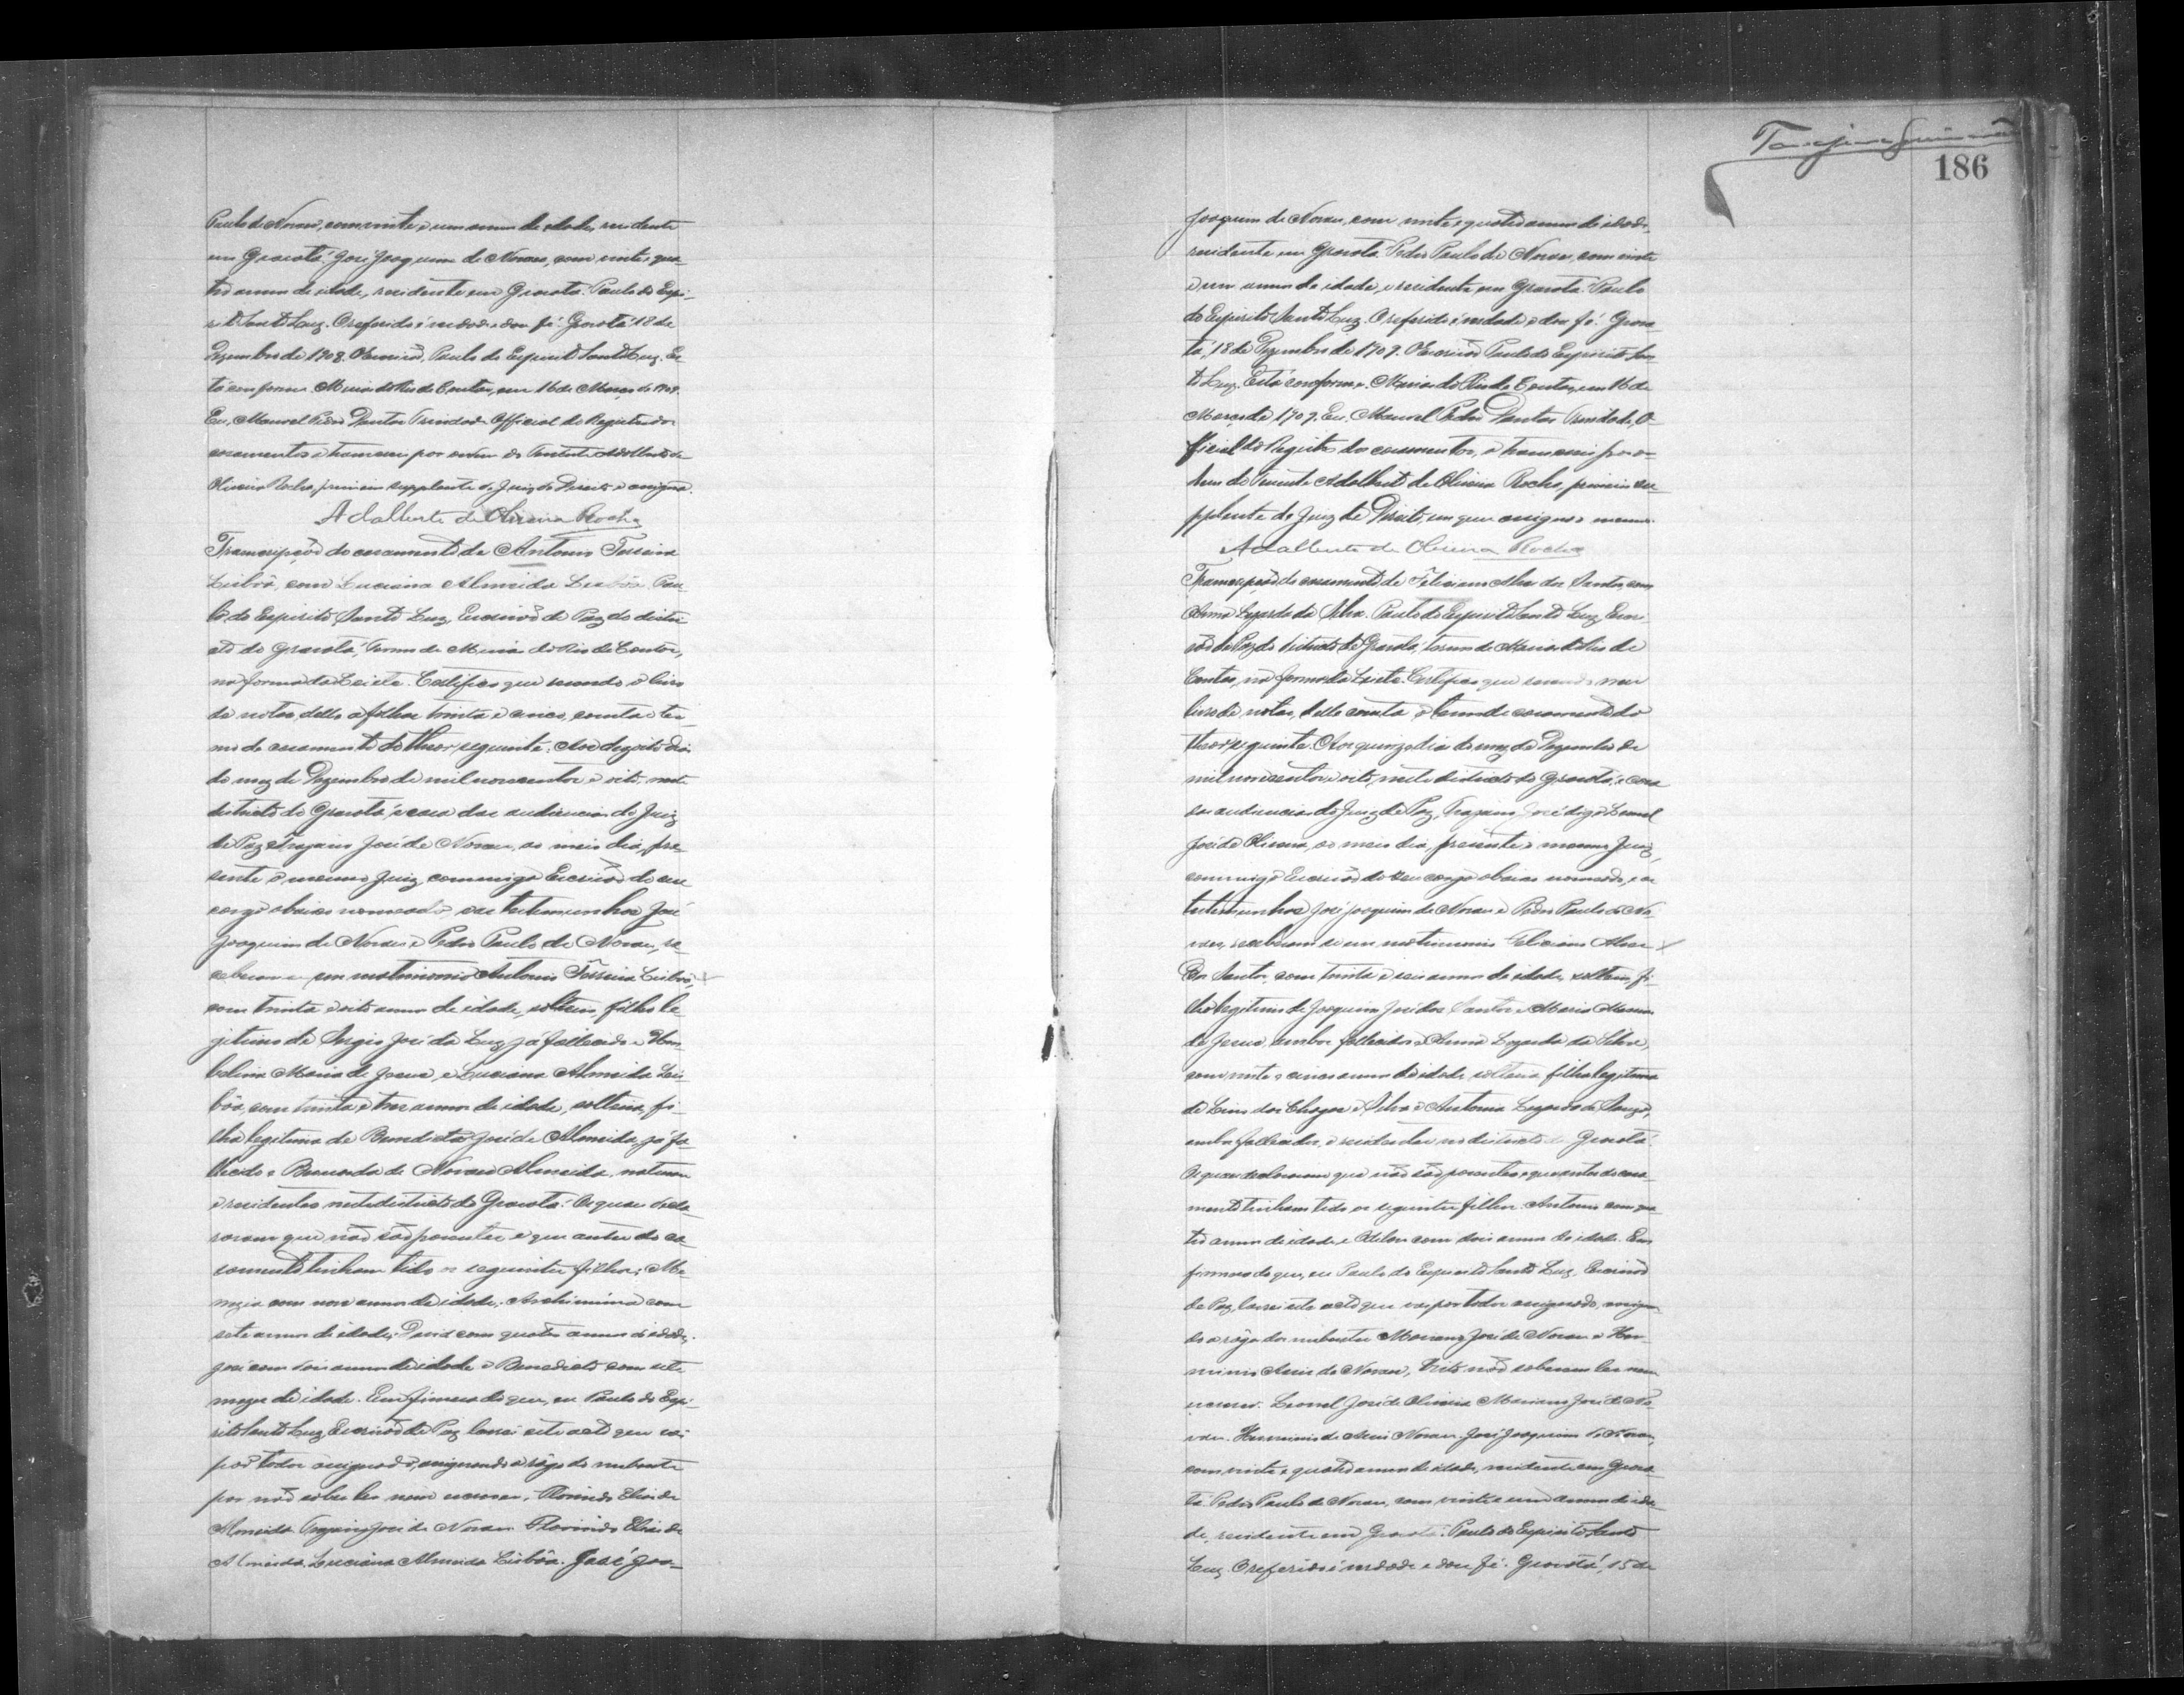 Paulo de Novaes, com vinte e um annos de idade, residente
em Gravatá. José Joaquim de Novaes, com vinte e qua-
tro annos de idade, residente em Gravatá. Paulo do Espi-
rito Santo Luz. O referido é verdade e dou fé. Gravatá 18 de
Dezembro de 1908. O Escrivão, Paulo do Espirito Santo Luz. Es-
tá conforme. Minas do Rio de Contas, em 16 de Março de 1909.
Eu, Manoel Pedro Dantas Trindade Official do Registro dos
casamentos o transcrevi por ordem do Tenente Adalberto de
Oliveira Rocha, primeiro supplente do Juiz de Direito e assigna.
Adalberto de Oliveira Rocha
Transcripção do casamento de Antonio Ferreira
Lisbôa, com Luciana Almeida Lisbôa. Pau-
lo do Espirito Santo Luz, Escrivão de Paz do distri-
cto de Gravatá, Termo de Minas do Rio de Contas,
na forma da Lei etc. Certifico que revendo o livro
de notas, delle a folhas trinta e cinco, consta o ter-
mo de casamento do theor seguinte: Aos dezoito dias
do mez de Dezembro de mil novecentos e oito, neste
districto de Gravatá, e casa das audiencias do Juiz
de Paz Trajano José de Novaes, ao meio dia, pre-
sente o mesmo Juiz, commigo Escrivão de seu
cargo abaixo nomeado e as testemunhas José
Joaquim de Novaes e Pedro Paulo de Novaes, re-
ceberam-se em matrimonio Antonio Ferreira Lisbôa,
com trinta e oito annos de idade, solteiro, filho le-
gitimo de Sergio José da Luz já fallecido e Um-
belina Maria de Jesus, e Luciana Almeida Lis-
bôa, com trinta e tres annos de idade, solteira, fi-
lha legitima de Benedicto José de Almeida, já fa-
llecido e Bernarda de Novaes Almeida, naturaes
e residentes neste districto de Gravatá. Os quaes decla-
raram que não são parentes e que antes do ca-
samento tinham tido os seguintes filhos:
com nove annos de idade; Archimina com
sete annos de idade; David com quatro annos de idade;
José com dois annos de idade e Benedicto com sete
mezes de idade. Em firmeza do que, eu Paulo do Espi-
rito Santo Luz Escrivão de Paz lavrei este acto que vai
por todos assignado, assignando a rogo do nubente
por não saber ler nem escrever, Florindo Elias de
Almeida. Trajano José de Novaes. Florindo Elias de
Almeida. Luciana Almeida Lisbôa. José Joa-
186
Joaquim de Novaes, com vinte e quatro annos de idade,
residente em Gravatá. Pedro Paulo de Novaes, com vinte
e um annos de idade, e residente em Gravatá. Paulo
do Espirito Santo Luz. O referido é verdade e dou fé. Grava-
tá, 18 de Dezembro de 1909. O Escrivão Paulo do Espirito San-
to Luz. Está conforme. Minas do Rio de Contas, em 16 de
Março de 1909. Eu, Manoel Pedro Dantas Trindade, O-
fficial do Registro dos casamentos, o transcrevi por or-
dem do Tenente Adalberto de Oliveira Rocha, primeiro su-
pplente do Juiz de Direito, em que assigna o mesmo.
Adalberto de Oliveira Rocha
Transcripção do casamento de Feliciano Alves dos Santos, com
Anna Lizarda da Silva. Paulo do Espirito Santo Luz, Escri-
vão de Paz do districto de Gravatá, termo de Minas do Rio de
Contas, na forma da Lei etc. Certifico que revendo meu
livro de notas, delle consta o termo de casamento do
theor seguinte: Aos quinze dias do mez de Dezembro de
mil novecentos e oito, neste districto de Gravatá, e casa
das audiencias do Juiz de Paz, Trajano José digo Leonel
José de Oliveira, ao meio dia, presente o mesmo Juiz,
commigo Escrivão do seu cargo abaixo nomeado, e as
testemunhas José Joaquim de Novaes e Pedro Paulo de No-
vaes, receberam-se em matrimonio Feliciano Alves
dos Santos, com trinta e seis annos de idade, solteiro, fi-
lho legitimo de Joaquim José dos Santos e Maria
de Jesus, ambos fallecidos e Anna Lizarda da Silva,
com vinte e cinco annos de idade, solteira, filha legitima
de Lino das Chagas e Silva e Antonia Lizarda de Souza,
ambos fallecidos, e residentes no districto de Gravatá.
Os quaes declararam que não são parentes e que antes do casa-
mento tinham tido os seguintes filhos: Antonio com qua-
tro annos de idade e com dois annos de idade. Em
firmeza do que, eu Paulo do Espirito Santo Luz, Escrivão
de Paz, lavrei este acto que vae por todos assignado, assignan-
do a rogo dos nubentes Mariano José de Novaes e Her-
minio de Novaes, visto não saberem ler nem
escrever. Leonel José de Oliveira. Mariano José de No-
vaes. Herminio de Novaes. José Joaquim de Novaes,
com vinte e quatro annos de idade, residente em Grava-
tá. Pedro Paulo de Novaes, com vinte e um annos de ida-
de, residente em Gravatá. Paulo do Espirito Santo
Luz. O referido é verdade e dou fé. Gravatá, 15 de